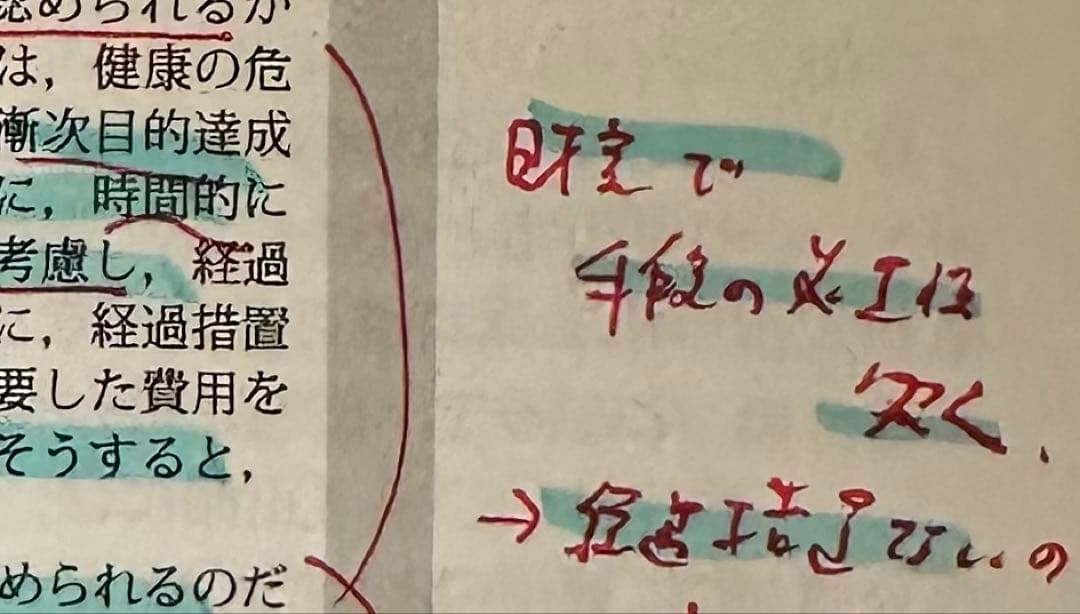 認められるか
は，健康の危
漸次目的達成
に，時間的に
考慮し，経過
に，経過措置
要した費用を
そうすると，
められるのだ
で
手段の必エ性
欠く、
→経過措置ないの